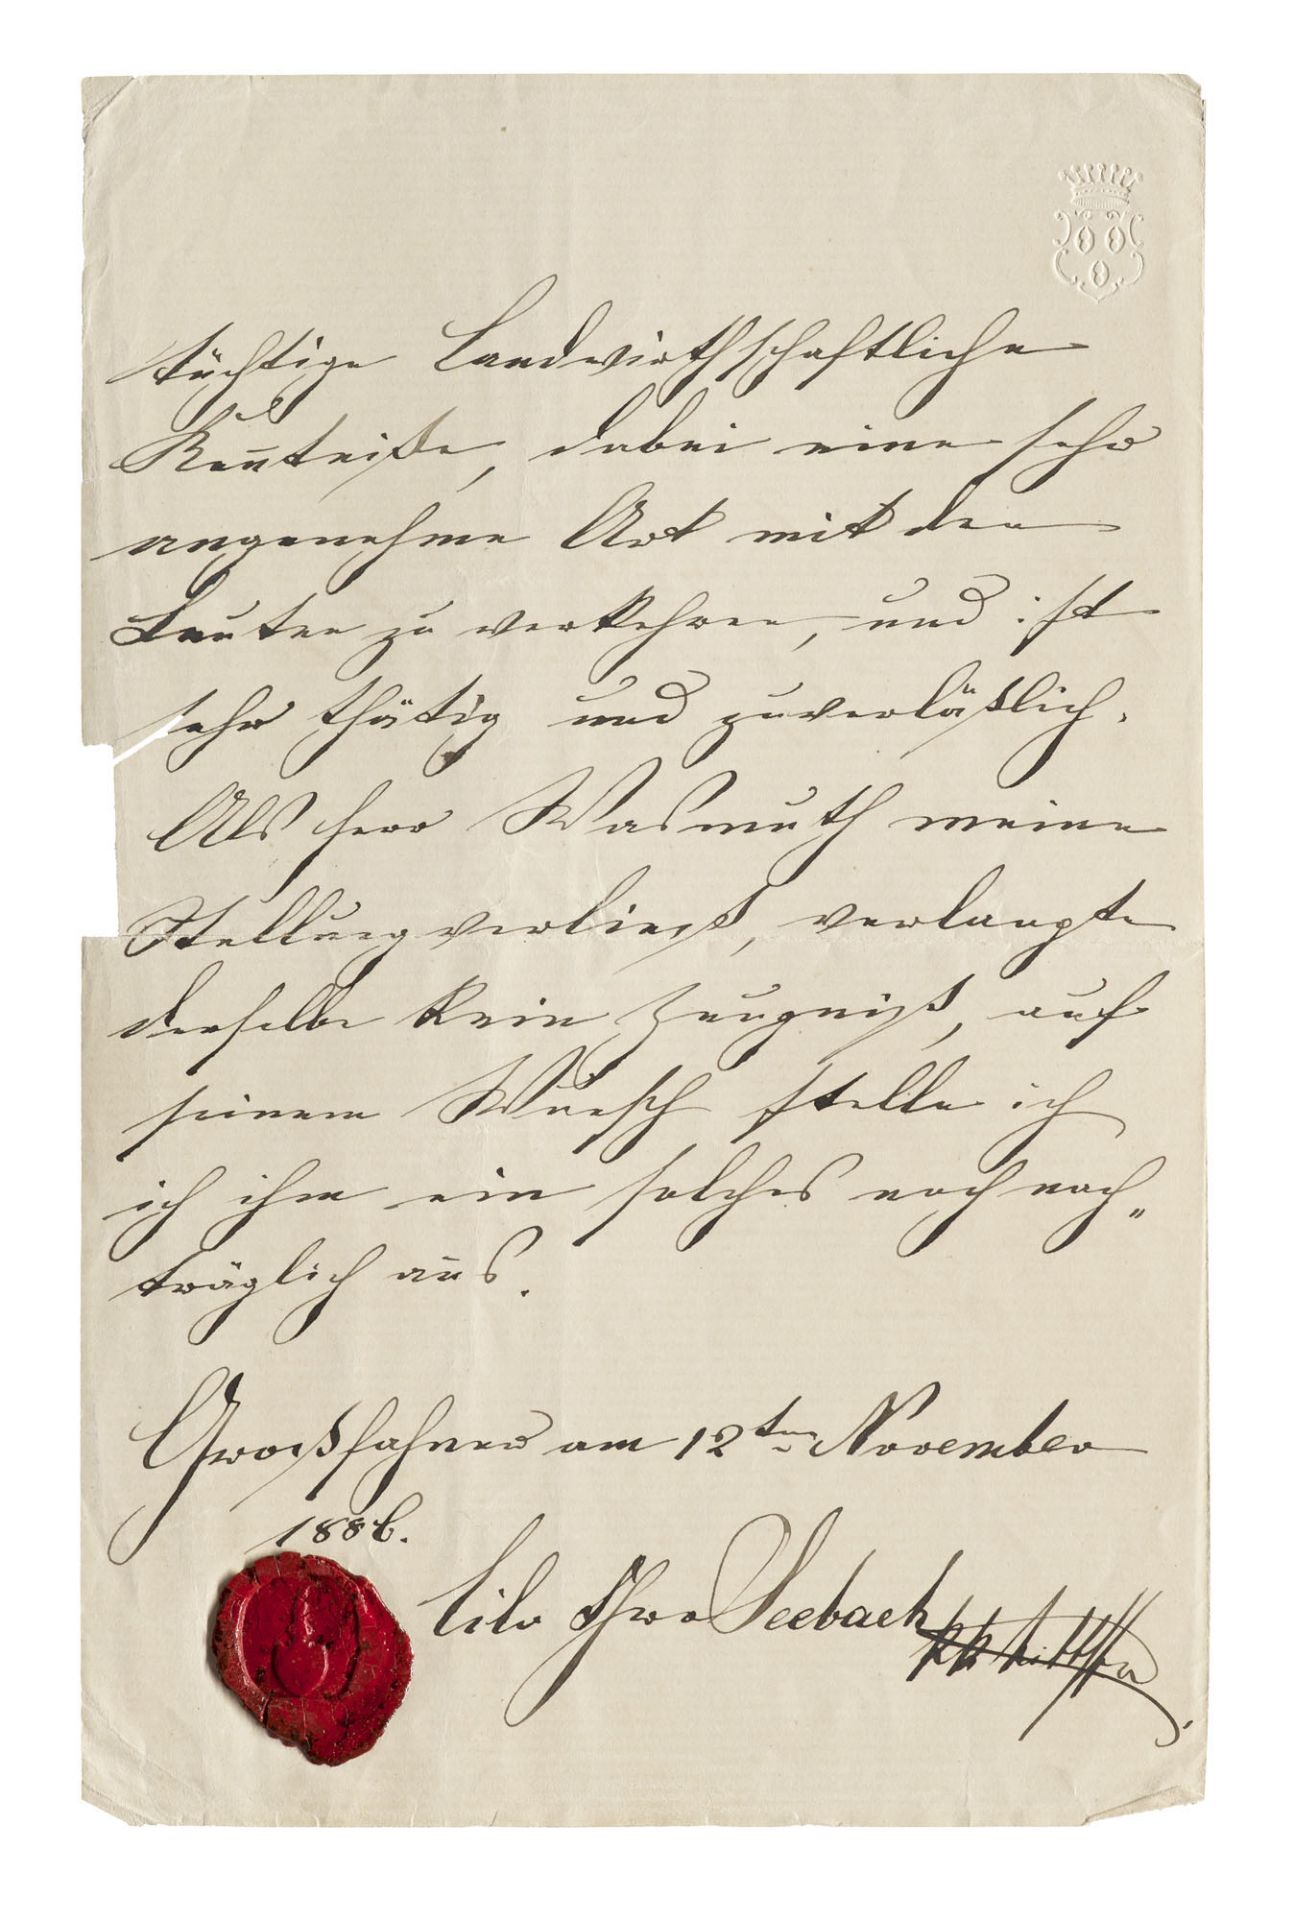 tüchtige Landwirthschaftliche
Kenntniße, dabei eine sehr
angenehme Art mit den
Leuten zu verkehren, und ist
sehr thätig und zuverläßlich.
Als Herr Wasmuth meine
Stellung verließ, verlangte
derselbe kein Zeugniß, auf
seinem Wunsch stelle ich
ich ihm ein solches noch nach„
träglich aus.
Großfahner am 12ten November
1886.
Seebach